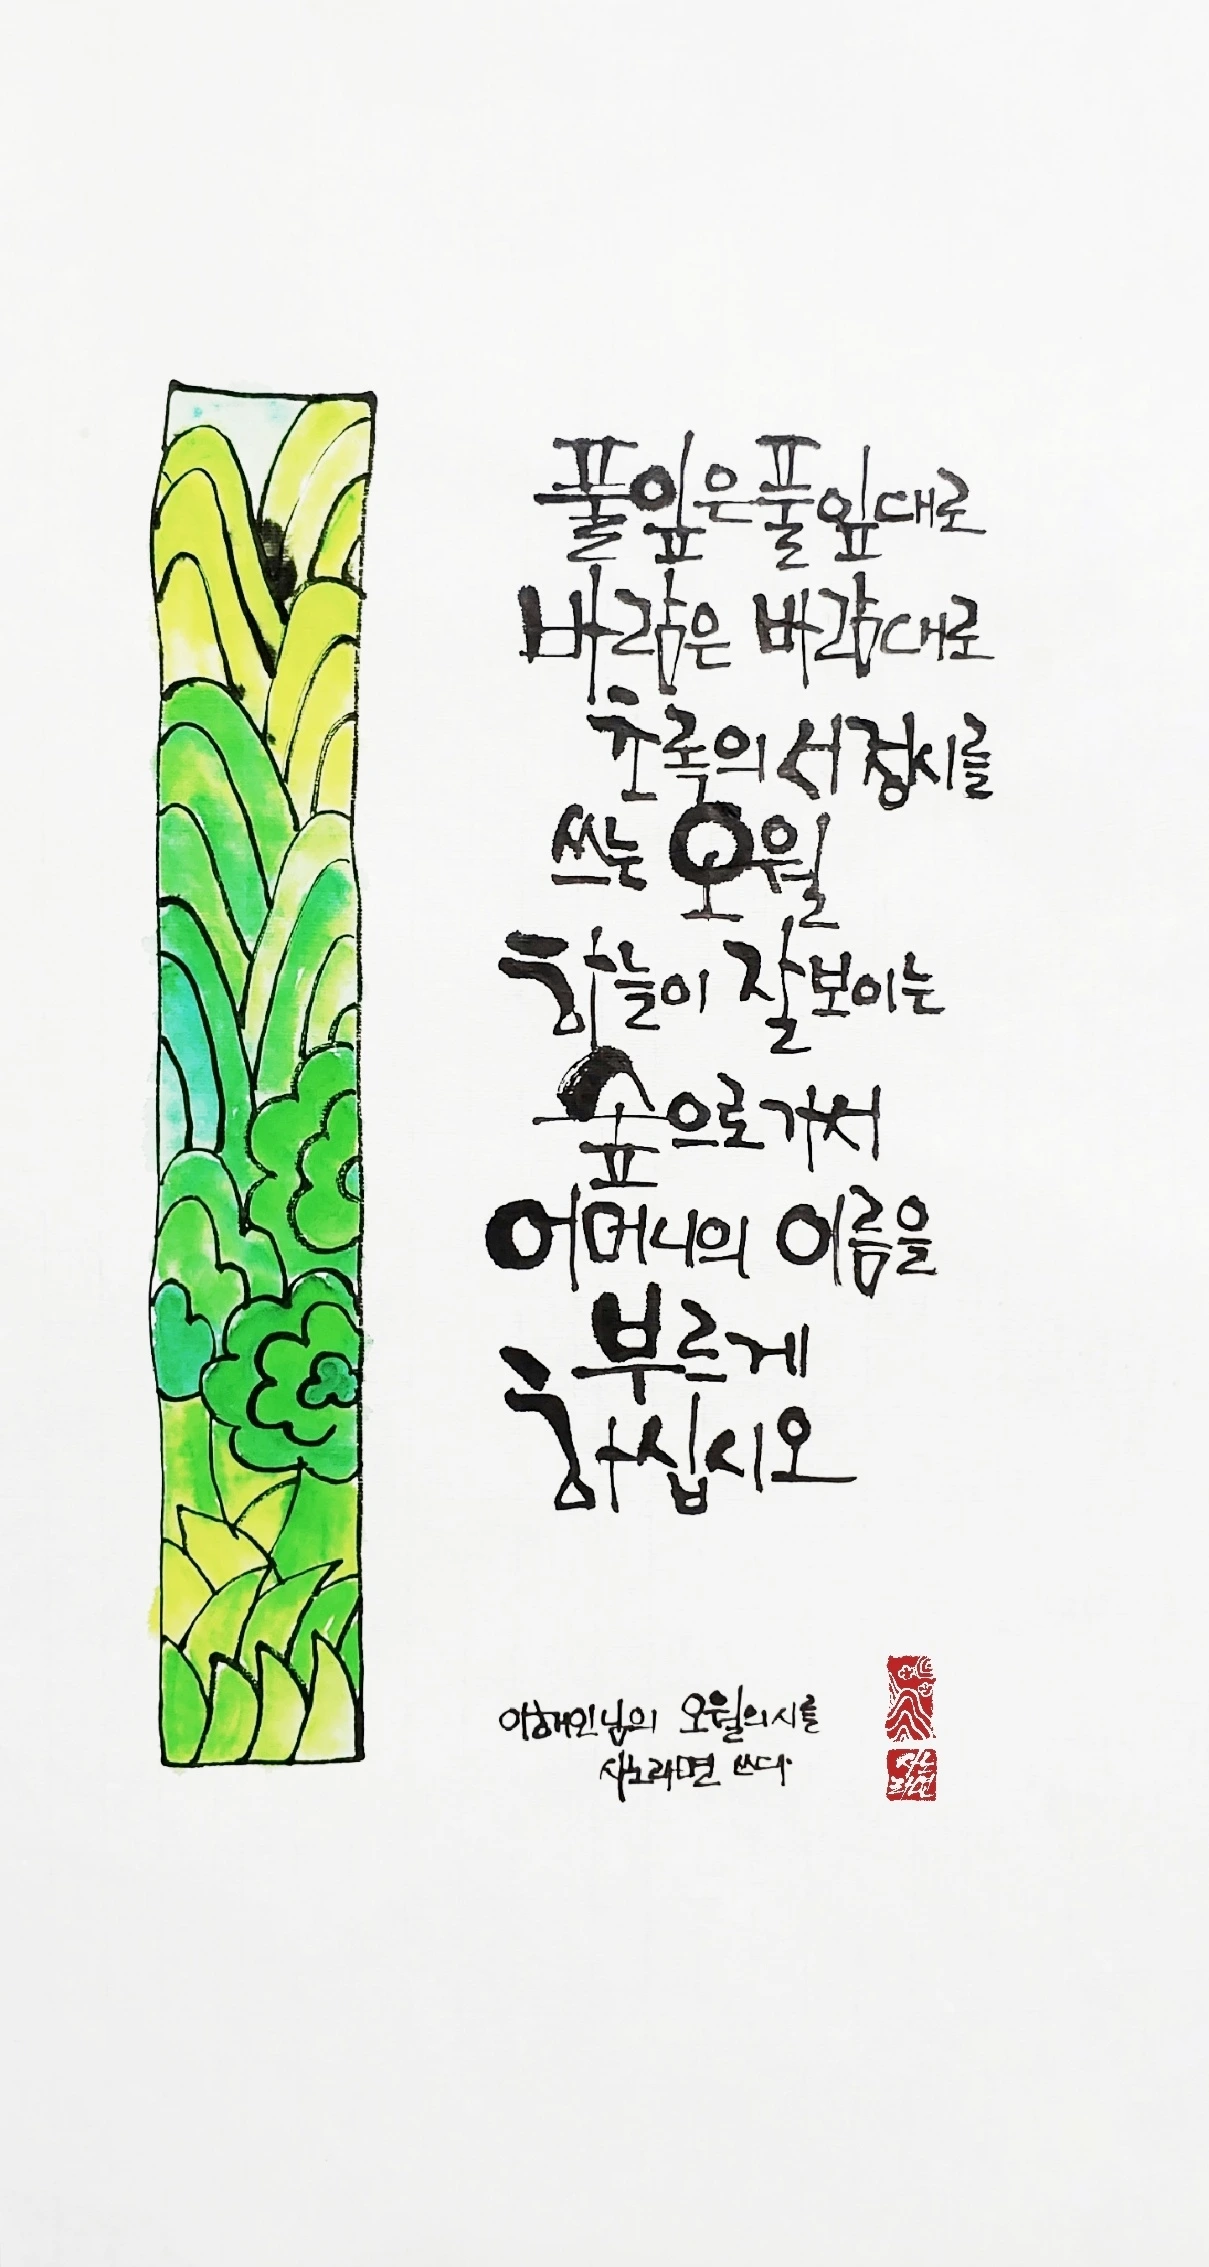 풀잎은 풀잎대로
바람은 바람대로
초록의 서정시를
쓰는 오월
하늘이 잘 보이는
숲으로 가서
어머니의 이름을
부르게
하십시오
이해인님의 오월의 시를
시노라면 쓰다.